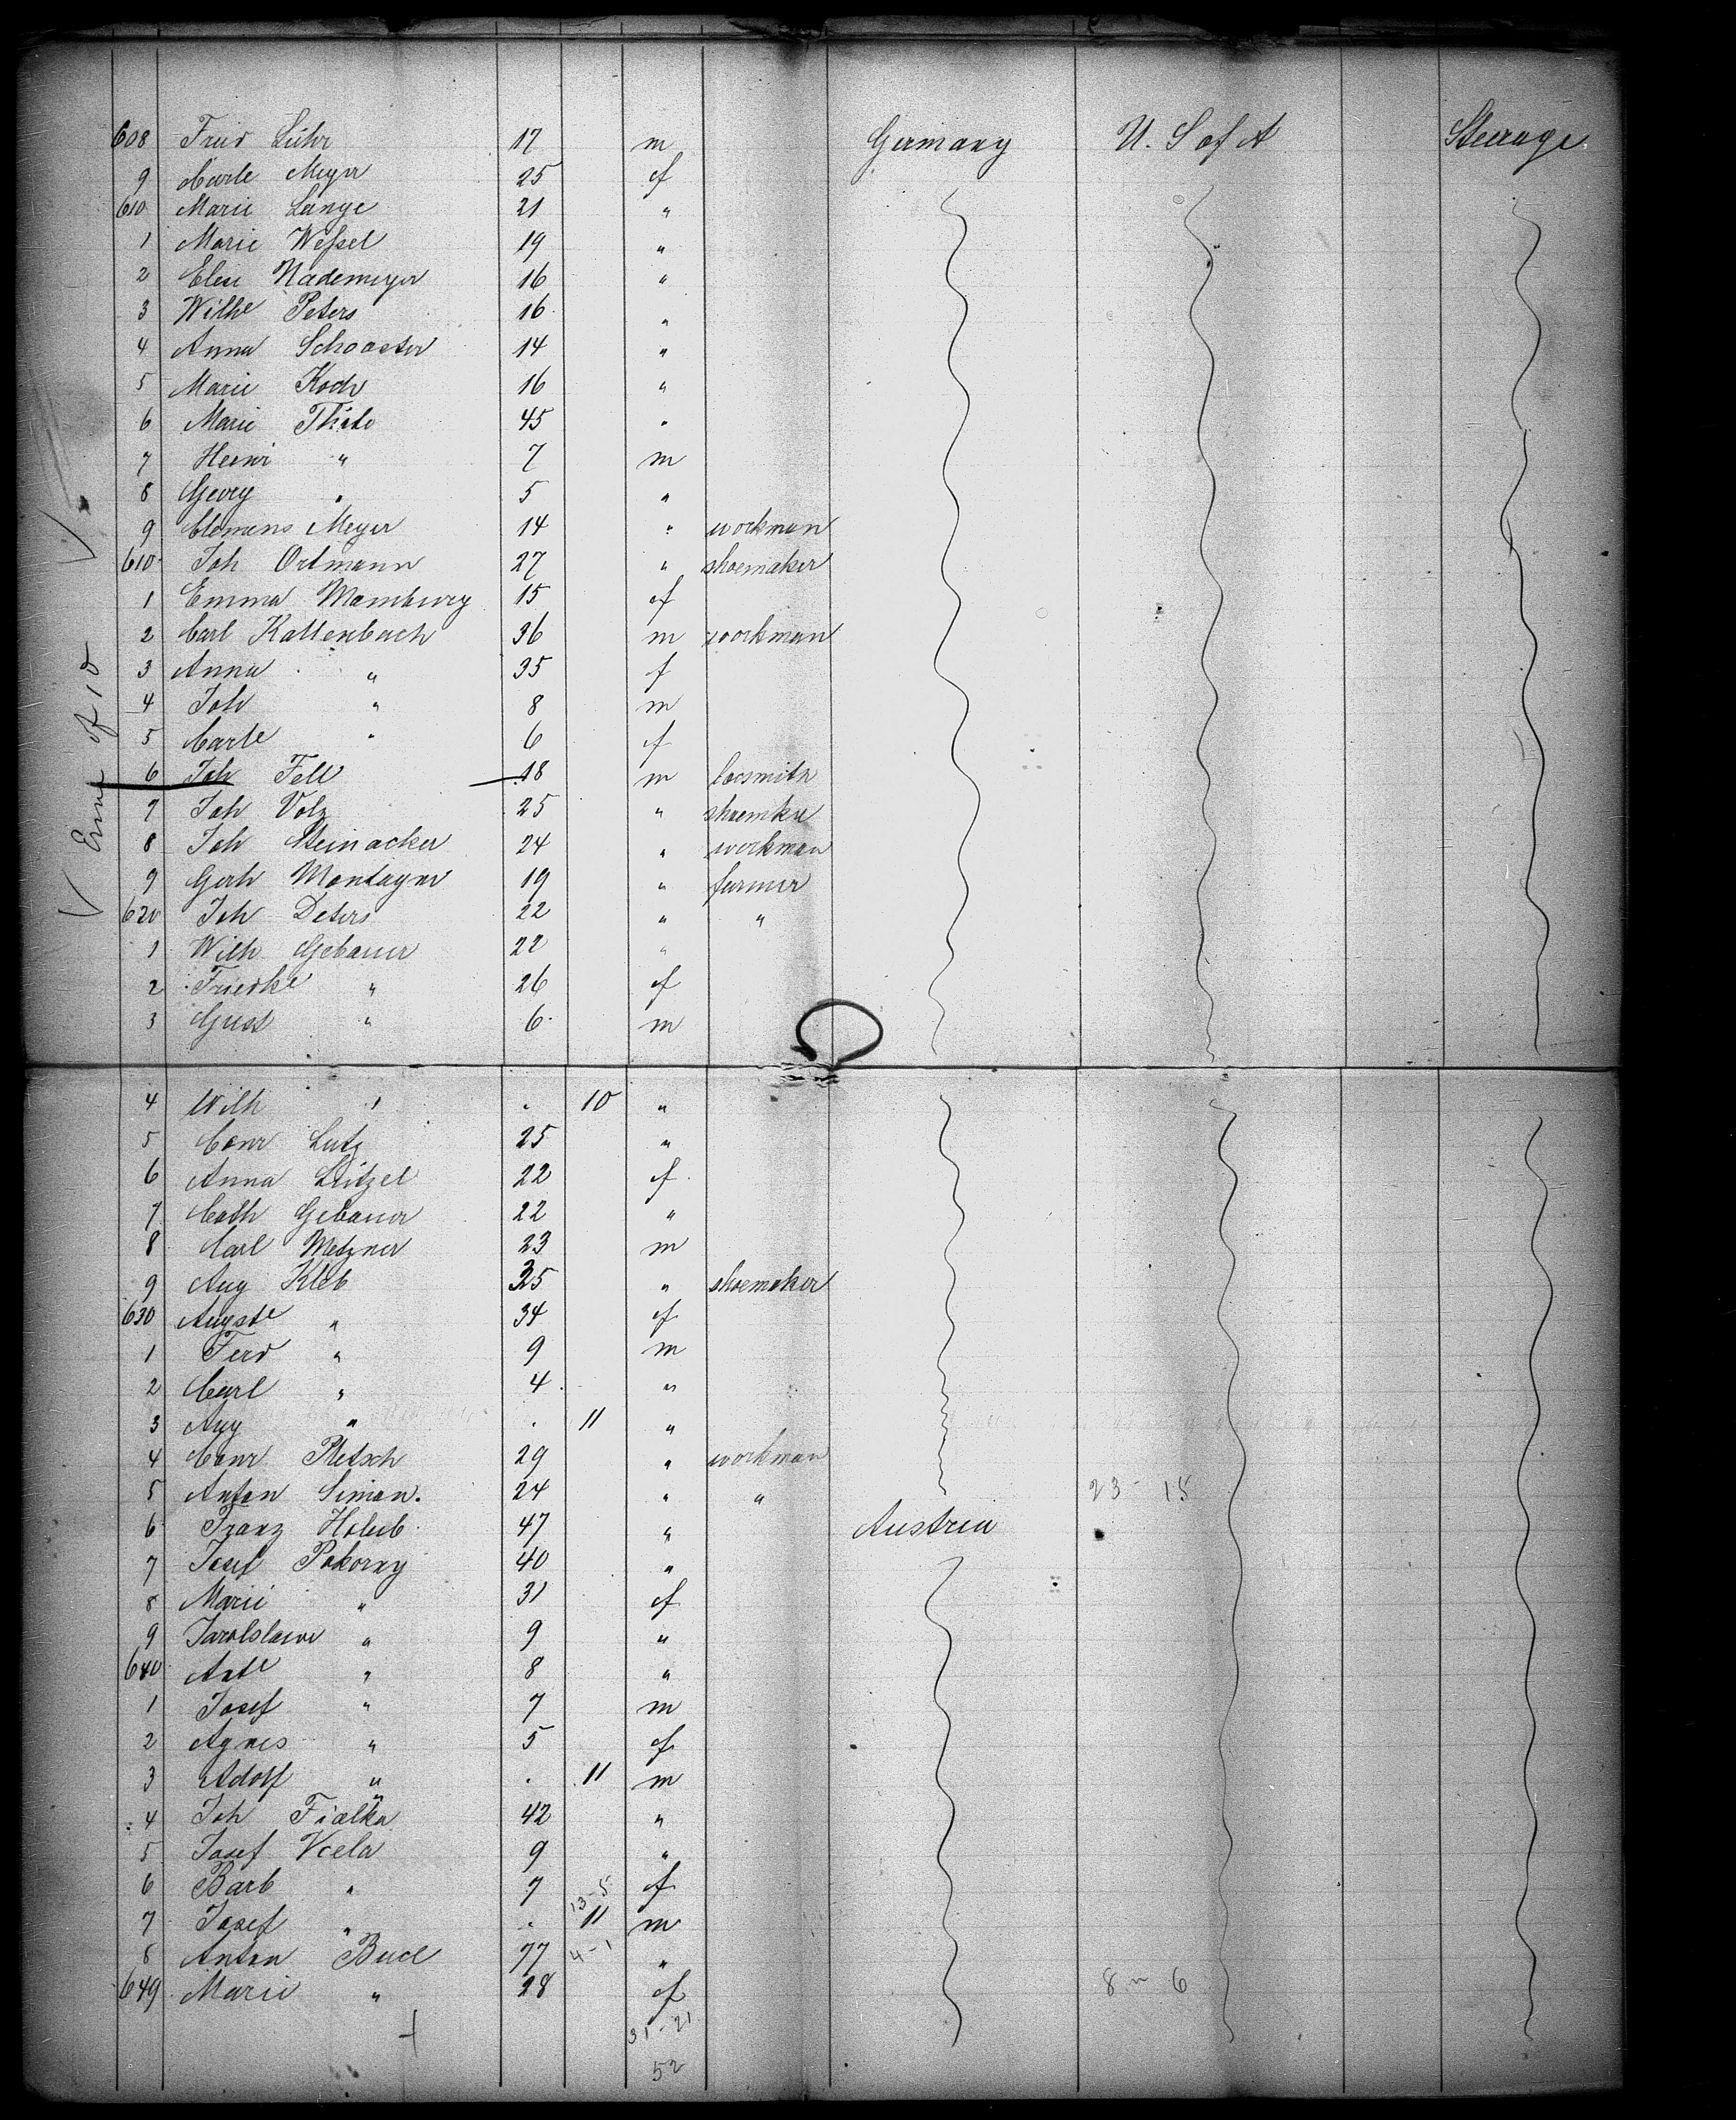 608 Fried Lühr 17 m Germany U. S of A Steerage
9 Carle Meyer 25 f
610 Marie Lange 21 "
1 Marie Weſsel 19 "
2 Elese Nademeyer 16 "
3 Wilhe Peters 16 "
4 Anna Schoaster 14 "
5 Marie Koch 16 "
6 Marie 45 "
7 Heinr " 7 m
8 Georg " 5 "
9 Clemens Meyer 14 " workman
610 Joh Ortmann 27 " shoemaker
1 Emma Mamburg 15 f
2 Carl Kaltenbach 36 m workman
3 Anna " 35 f
4 Joh " 8 m
5 Carle " 6 f
6 Joh Fell 18 m locsmith
7 Joh Volz 25 " shoemker
8 Joh Steinacker 24 " workman
9 Gerh Montagne 19 " farmer
620 Joh Deters 22 " "
1 Wilh Gebauer 22 "
2 Friedke " 26 f
3 Gust " 6 m
4 Wilh " . 10 "
5 Conr Lutz 25 "
6 Anna Lützel 22 f
7 Cath Gebauer 22 "
8 Carl Metzner 23 m
9 Aug Kleb 35 " shoemaker
630 Auguste " 34 f
1 Ferd " 9 m
2 Carl " 4 "
3 Aug " . 11 "
4 Conr Pletsch 29 " workman
5 Anton Siman. 24 " " 23 - 15
6 Franz Holub 47 " Austria
7 Josef Pokorny 40 "
8 Marie " 31 f
9 Jarolslawe " 9 "
640 " 8 "
1 Josef " 7 m
2 Agnes " 5 f
3 Adolf " . 11 m
4 Joh Fialka 42 "
5 Josef Vcela 9 "
6 Barb " 7 f
13-5
7 Josef " . 11 m
8 Anton 77 4-1 "
649 Marie " 28 f 8 ~ 6
31-21
52
V
V
of 10